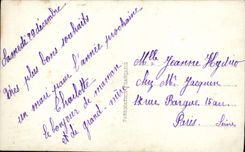 Samedi 29 décembre
Mes plus bons souhaits
un mari pour l'année prochaine
Charlotte
le bonjour de maman
et de grand-mère
Mlle Jeanne
chez Mr Jacquin
rue Barque 15 arr
Paris
Seine